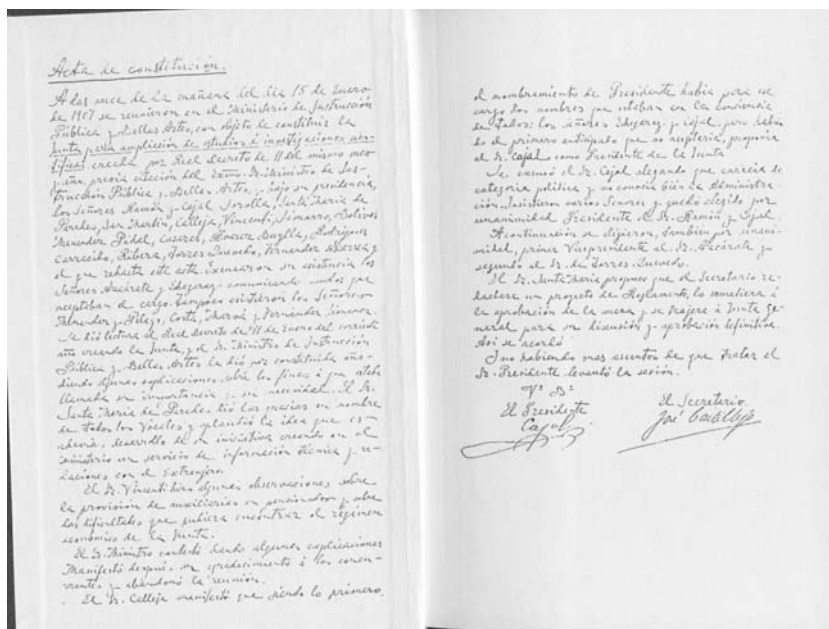 Acta de constitución.
A las once de la mañana del día 15 de Enero
de 1907 se reunieron en el Ministerio de Instrucción
Pública y Bellas Artes, con objeto de constituir la
Junta para ampliación de estudios é investigaciones cien-
tíficas, creada por Real decreto de 11 del mismo mes
y año, previa citación del Excmo. Sr. Ministro de Ins-
trucción Pública y Bellas Artes, y bajo su presidencia,
los Señores Ramón y Cajal, Sorolla, Santa María de
Paredes, San Martín, Calleja, Vincenti, Simarro, Bolívar,
Menéndez Pidal, Casares, Álvarez Buylla, Rodríguez
Carracido, Ribera, Torres Quevedo, Fernández Ascarza y
el que redacta este acta. Excusaron su asistencia los
Señores Azcárate y Echegaray comunicando ambos que
aceptaban el cargo. Tampoco asistieron los Señores
Menéndez y Pelayo, Costa, Marvá y Fernández Jiménez.
Se dió lectura al Real decreto de 11 de Enero del corriente
año creando la Junta, y el Sr. Ministro de Instrucción
Pública y Bellas Artes la dió por constituida aña-
diendo algunas explicaciones sobre los fines á que estaba
llamada su importancia y su necesidad. El Sr.
Santa María de Paredes dió las gracias en nombre
de todos los Vocales y aplaudió la idea que es-
desarrollo de su iniciativa creando en el
Ministerio un servicio de información técnica y re-
laciones con el Extranjero.
El Sr. Vincenti hizo algunas observaciones sobre
la provisión de auxiliarías en pensionados y sobre
las dificultades que pudiera encontrar el régimen
económico de la Junta.
El Sr. Ministro contestó dando algunas explicaciones
Manifestó después su agradecimiento á los concu-
rrentes y abandonó la reunión.
El Sr. Calleja manifestó que siendo lo primero
el nombramiento de Presidente había para ese
cargo dos nombres que estaban en la conciencia
de todos: los señores Echegaray y Cajal; pero habien-
do el primero anticipado que no aceptaría, proponía
al Sr. Cajal como Presidente de la Junta
Se excusó el Sr. Cajal alegando que carecía de
categoría política y no conocía bien la Administra-
ción. Insistieron varios Señores y quedó elegido por
unanimidad Presidente el Sr. Ramón y Cajal.
A continuación se eligieron, también por unani-
midad, primer Vicepresidente al Sr. Azcárate y
segundo al Sr. de Torres Quevedo.
El Sr. Santa María propuso que el Secretario re-
dactase un proyecto de Reglamento, lo sometiera á
la aprobación de la mesa y se trajere á Junta Ge-
neral para su discusión y aprobación definitiva.
Así se acordó
Y no habiendo mas asuntos de que tratar el
Sr. Presidente levantó la sesión.
Vº Bº
El Presidente
Cajal
El Secretario.
José Castillejo